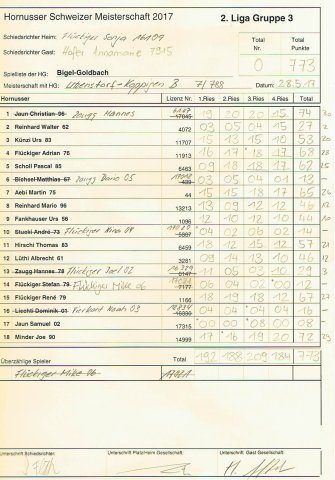 Hornusser Schweizer Meisterschaft 2017
2. Liga Gruppe 3
Schiedsrichter Heim: Flückiger Sonja 16109
Total Nr. Total Punkte
Schiedsrichter Gast: Hofer Annamarie 7315
0 773
Spielliste der HG: Bigel-Goldbach
Meisterschaft mit HG: Utzenstorf-Koppigen B 7/788 Datum: 28.5.17
Hornusser Lizenz Nr. 1.Ries 2.Ries 3.Ries 4.Ries Total
1 Jaun Christian 96 Zaugg Hannes 17045 19 20 20 15 74
2 Reinhard Walter 62 4072 03 05 04 15 27
3 Künzi Urs 83 11707 15 13 15 10 53
4 Flückiger Adrian 76 11913 16 17 18 17 68
5 Scholl Pascal 85 6463 09 18 18 17 62
6 Bichsel Matthias 67 Zaugg Dario 05 439 03 05 04 01 13
7 Aebi Martin 75 44 15 15 18 17 65
8 Reinhard Mario 95 13213 13 09 12 12 46
9 Fankhauser Urs 56 1096 12 10 12 10 44
10 Stucki André 73 Flückiger Nina 09 5887 04 02 06 02 14
11 Hirschi Thomas 83 6459 18 12 15 12 57
12 Lüthi Albrecht 61 3281 09 14 13 10 46
13 Zaugg Hannes 78 Flückiger Joel 02 6147 11 05 03 10 29
14 Flückiger Stefan 79 Flückiger Mike 06 7177 06 04 02 00 12
15 Flückiger René 79 1166 18 19 18 12 67
16 Liechti Dominik 01 Gerhard Noah 03 16330 04 04 04 04 16
17 Jaun Samuel 02 17315 00 00 08 00 08
18 Minder Joe 90 14999 17 16 19 20 72
Überzählige Spieler Total 192 188 209 184 773
Flückiger Mike 06
Unterschrift Schiedsrichter Unterschrift Platz/Heim Gesellschaft Unterschrift Gast Gesellschaft